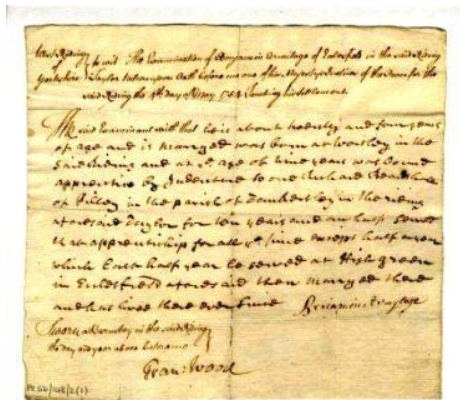 West Riding
of
Yorkshire
to wit The Examination of Benjamin Armitage of Ecclesfield in the said Riding
Taylor taken upon Oath before me one of his Majestys Justices of the Peace for the
said Riding the 4th day of May 1754 touching his settlement.
The said Examinant saith that he is about twenty and four years
of age and is marryed was born at Wortley in the
said Riding and at ye age of nine years was bound
apprentice by Indenture to one Richard
of in the parish of in the riding
aforesaid Taylor for ten years and an half served
that apprentiship for all ye time except half a year
which last half year he served at High green
in Ecclesfield aforesaid then marryed there
and has lived there ever since
Benjamin
Sworn at Barnsley in the said Riding
the day and year above
Fran: Wood